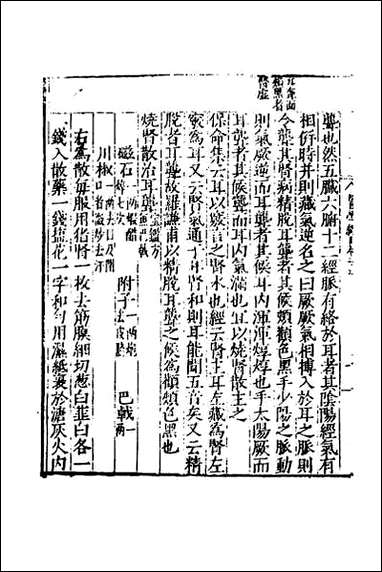 聾也然五臟六腑十二經脈有絡於耳者其陰陽經氣有
相併時并則藏氣逆名之曰厥厥氣相搏入於耳之脈則
令聾其腎病精脫耳聾者其候頰顴色黑手少陽之脈動
則氣厥逆而耳聾者其候耳內渾渾焞焞也手太陽厥而
耳聾者其候聾而耳內氣滿也宜以燒腎散主之
保命集云耳以竅言之腎水也經云腎主耳左藏為腎左
竅為耳又云腎氣通十耳腎和則耳能聞五音矣又云精
脫者耳聾故羅謙甫以精脫耳聾之候為顴頰色黑也
燒腎散治耳聾
磁石 一兩 醋 七次 附子 一兩炮 去皮臍 巴戟 一兩
川椒 一兩去目及閉口者 去汗
右為散每服用猪腎一枚去筋膜細切葱白韮白各一
錢入散藥一錢盐花一字和勻用濕紙裹於溏灰火內